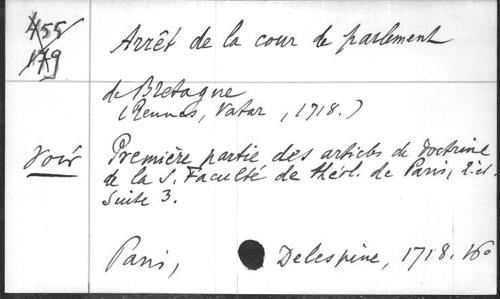 455
179
Arrêt de la cour de parlement
de Bretagne
(Rennes, Vatar, 1718.)
voir
Première partie des articles de doctrine
de la S. Faculté de théol. de Paris, 2. éd.
Suite 3.
Paris, Delespine, 1718. 16o